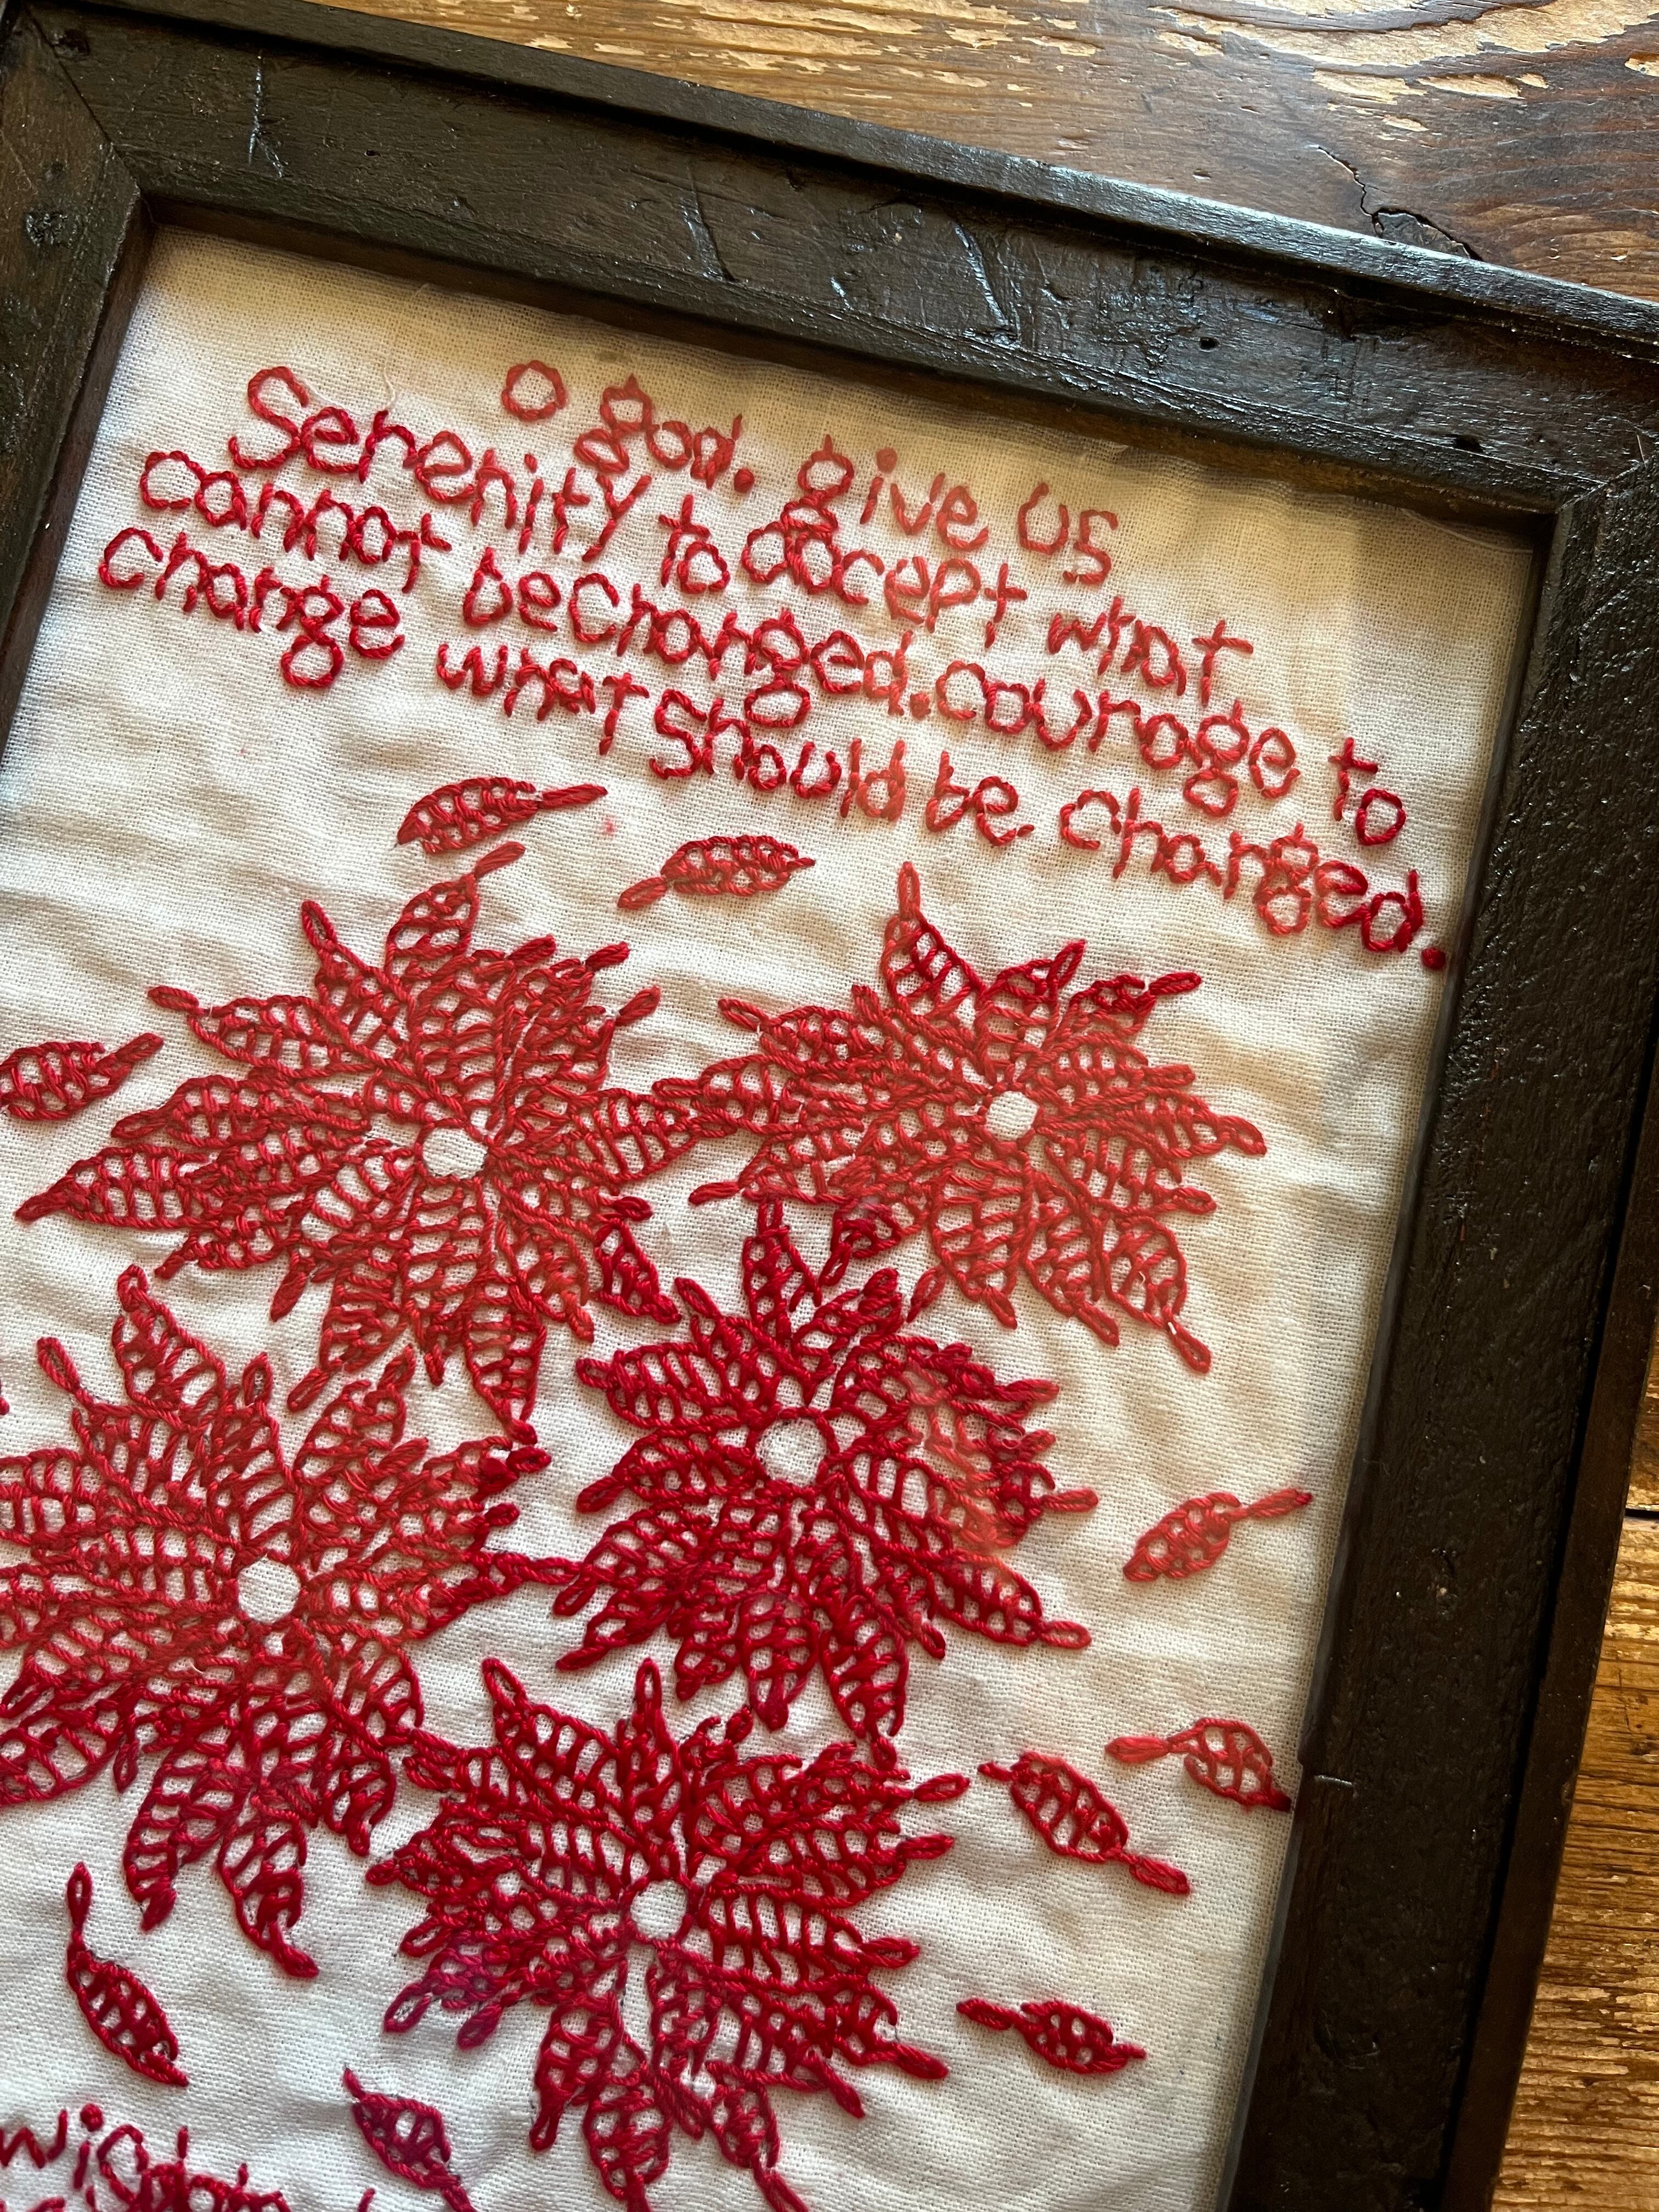 O god. give us
Serenity to accept what
cannot be changed. courage to
change what should be. changed.
wisdom